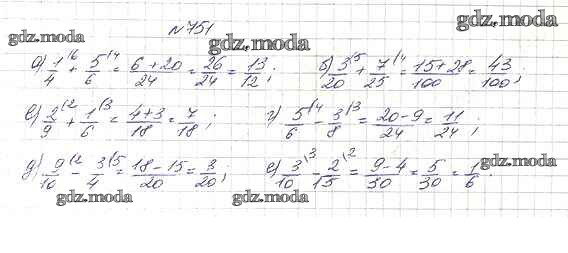 №751
gdz.moda gdz.moda gdz.moda
а) 1/4 \6 + 5/6 \4 = (6+20)/24 = 26/24 = 13/12; б) 3/20 \5 + 7/25 \4 = (15+28)/100 = 43/100;
в) 2/9 \2 + 1/6 \3 = (4+3)/18 = 7/18; г) 5/6 \4 - 3/8 \3 = (20-9)/24 = 11/24;
д) 9/10 \2 - 3/4 \5 = (18-15)/20 = 3/20; е) 3/10 \3 - 2/15 \2 = (9-4)/30 = 5/30 = 1/6. gdz.moda
gdz.moda gdz.moda